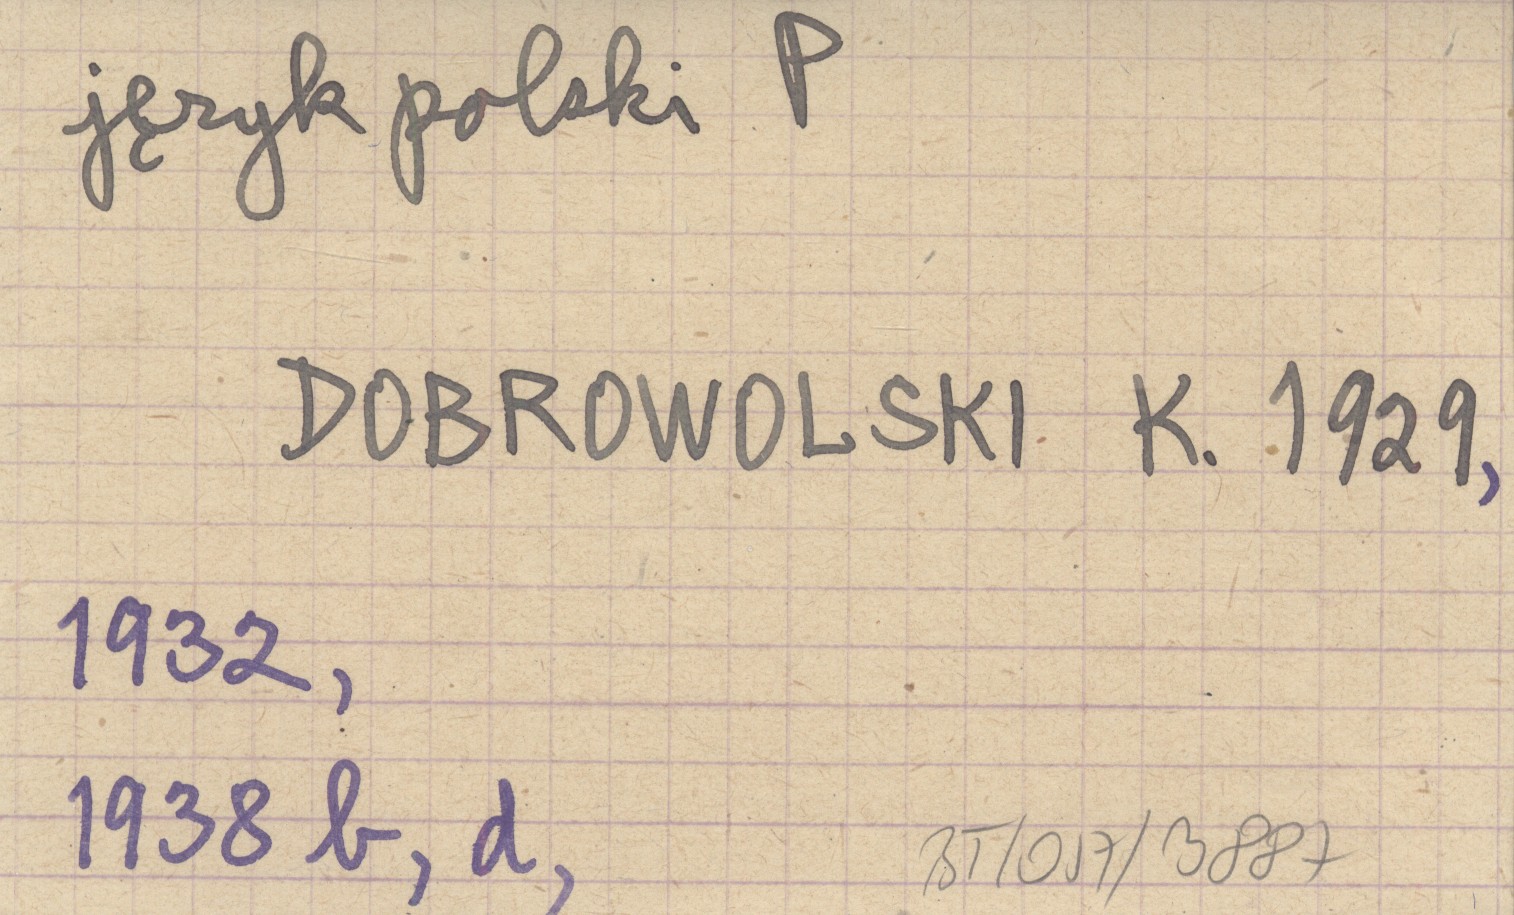 język polski P
DOBROWOLSKI K. 1929,
1932,
1938 b, d,
BT/017/3887